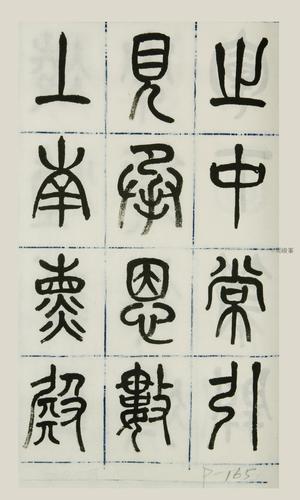 之中常引
見承恩數
上南熏殿
P-165